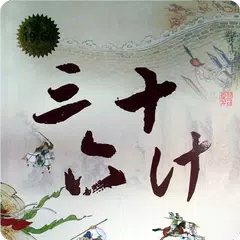 三十
六计